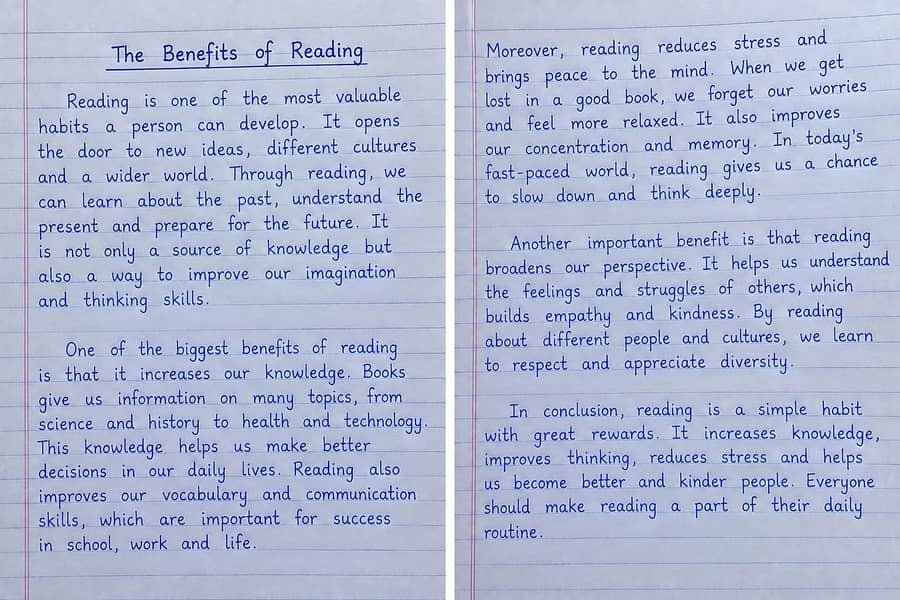 The Benefits of Reading
Reading is one of the most valuable
habits a person can develop. It opens
the door to new ideas, different cultures
and a wider world. Through reading, we
can learn about the past, understand the
present and prepare for the future. It
is not only a source of knowledge but
also a way to improve our imagination
and thinking skills.
One of the biggest benefits of reading
is that it increases our knowledge. Books
give us information on many topics, from
science and history to health and technology.
This knowledge helps us make better
decisions in our daily lives. Reading also
improves our vocabulary and communication
skills, which are important for success
in school, work and life.
Moreover, reading reduces stress and
brings peace to the mind. When we get
lost in a good book, we forget our worries
and feel more relaxed. It also improves
our concentration and memory. In today's
fast-paced world, reading gives us a chance
to slow down and think deeply.
Another important benefit is that reading
broadens our perspective. It helps us understand
the feelings and struggles of others, which
builds empathy and kindness. By reading
about different people and cultures, we learn
to respect and appreciate diversity.
In conclusion, reading is a simple habit
with great rewards. It increases knowledge,
improves thinking, reduces stress and helps
us become better and kinder people. Everyone
should make reading a part of their daily
routine.